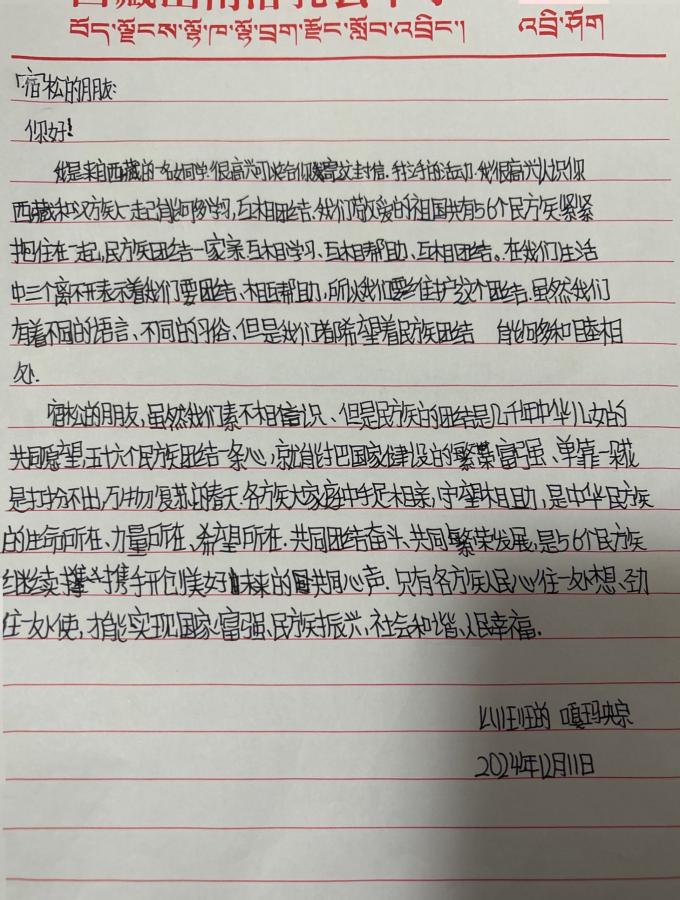 བོད་ལྗོངས་ལྷོ་ཁ་ལྷོ་བྲག་རྫོང་སློབ་འབྲིང་། འབྲི་ཤོག
宿松的朋友:
你好!
我是来自西藏的一名女同学.很高兴可以给你写这封信.手拉手的活动.我很高兴认识你
西藏和汉族人一起能够学习,互相团结.我们敬爱的祖国共有56个民族紧紧
抱住在一起,民族团结一家亲.互相学习、互相帮助、互相团结。在我们生活
中三个离不开表示着我们要团结、相互帮助,所以我们要维护这个团结.虽然我们
有着不同的语言、不同的习俗、但是我们都希望着民族团结 能够和睦相
处.
宿松的朋友,虽然我们素不相识、但是民族的团结是几千年中华儿女的
共同愿望,五十六个民族团结一条心,就能把国家建设的繁荣富强、单靠一朵花
是打扮不出万物复苏的春天.各族大家庭中手足相亲,守望相助,是中华民族
的生命所在、力量所在、希望所在.共同团结奋斗、共同繁荣发展,是56个民族
继续携手开创美好未来的共同心声.只有各族人民心往一处想、劲
往一处使,才能实现国家富强、民族振兴,社会和谐、人民幸福.
嘎玛央宗
2024年12月11日